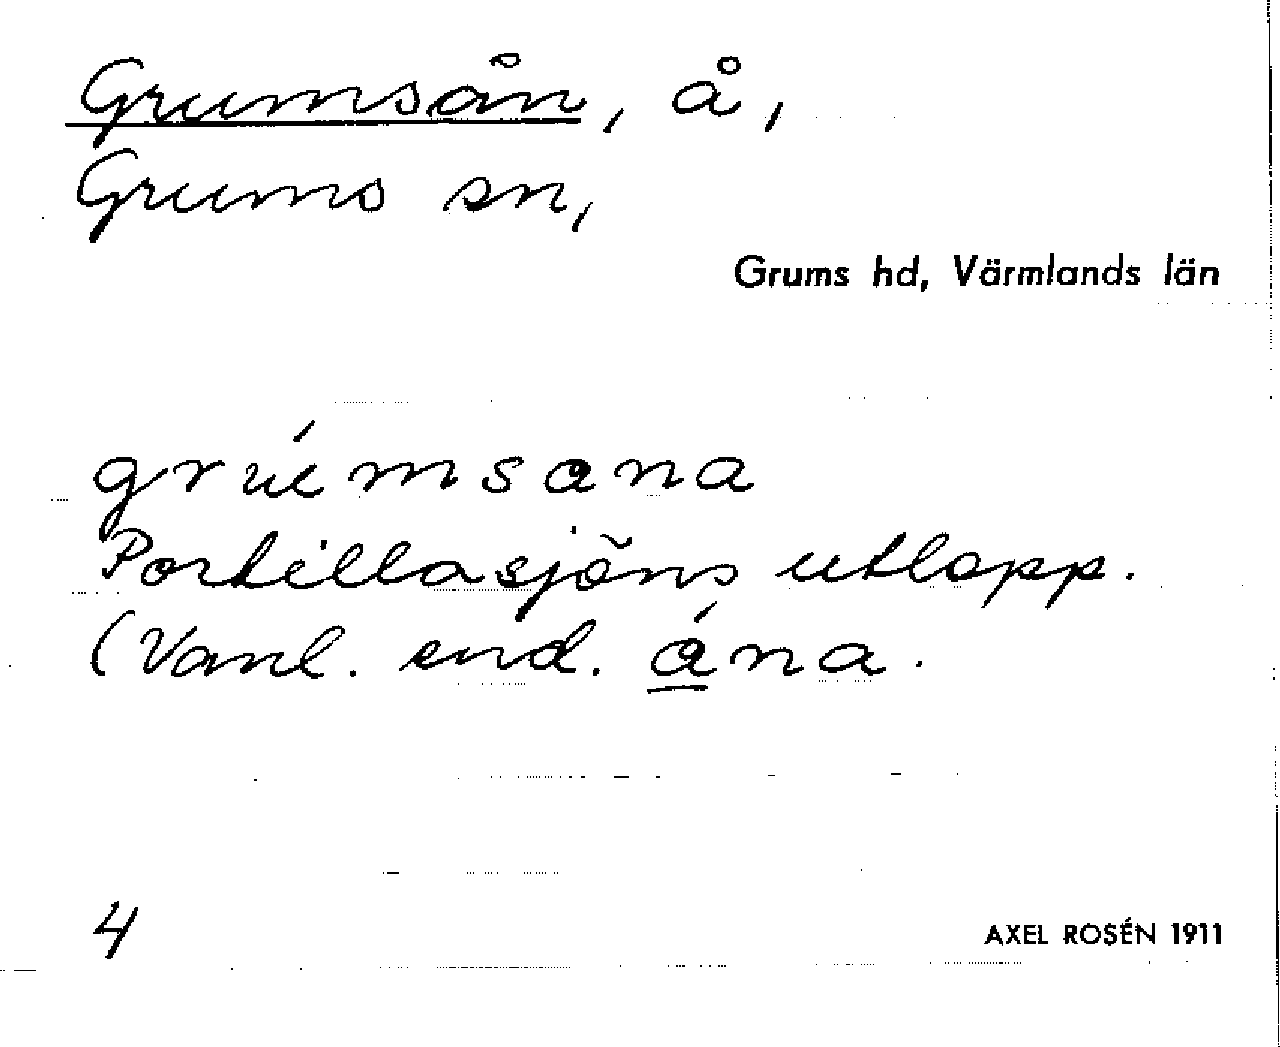 Grumsån, å,
Grums sn,
Grums hd, Värmlands län
grúmsana
Portillasjöns utlopp.
(Vanl. end. ána.
4
AXEL ROSÉN 1911